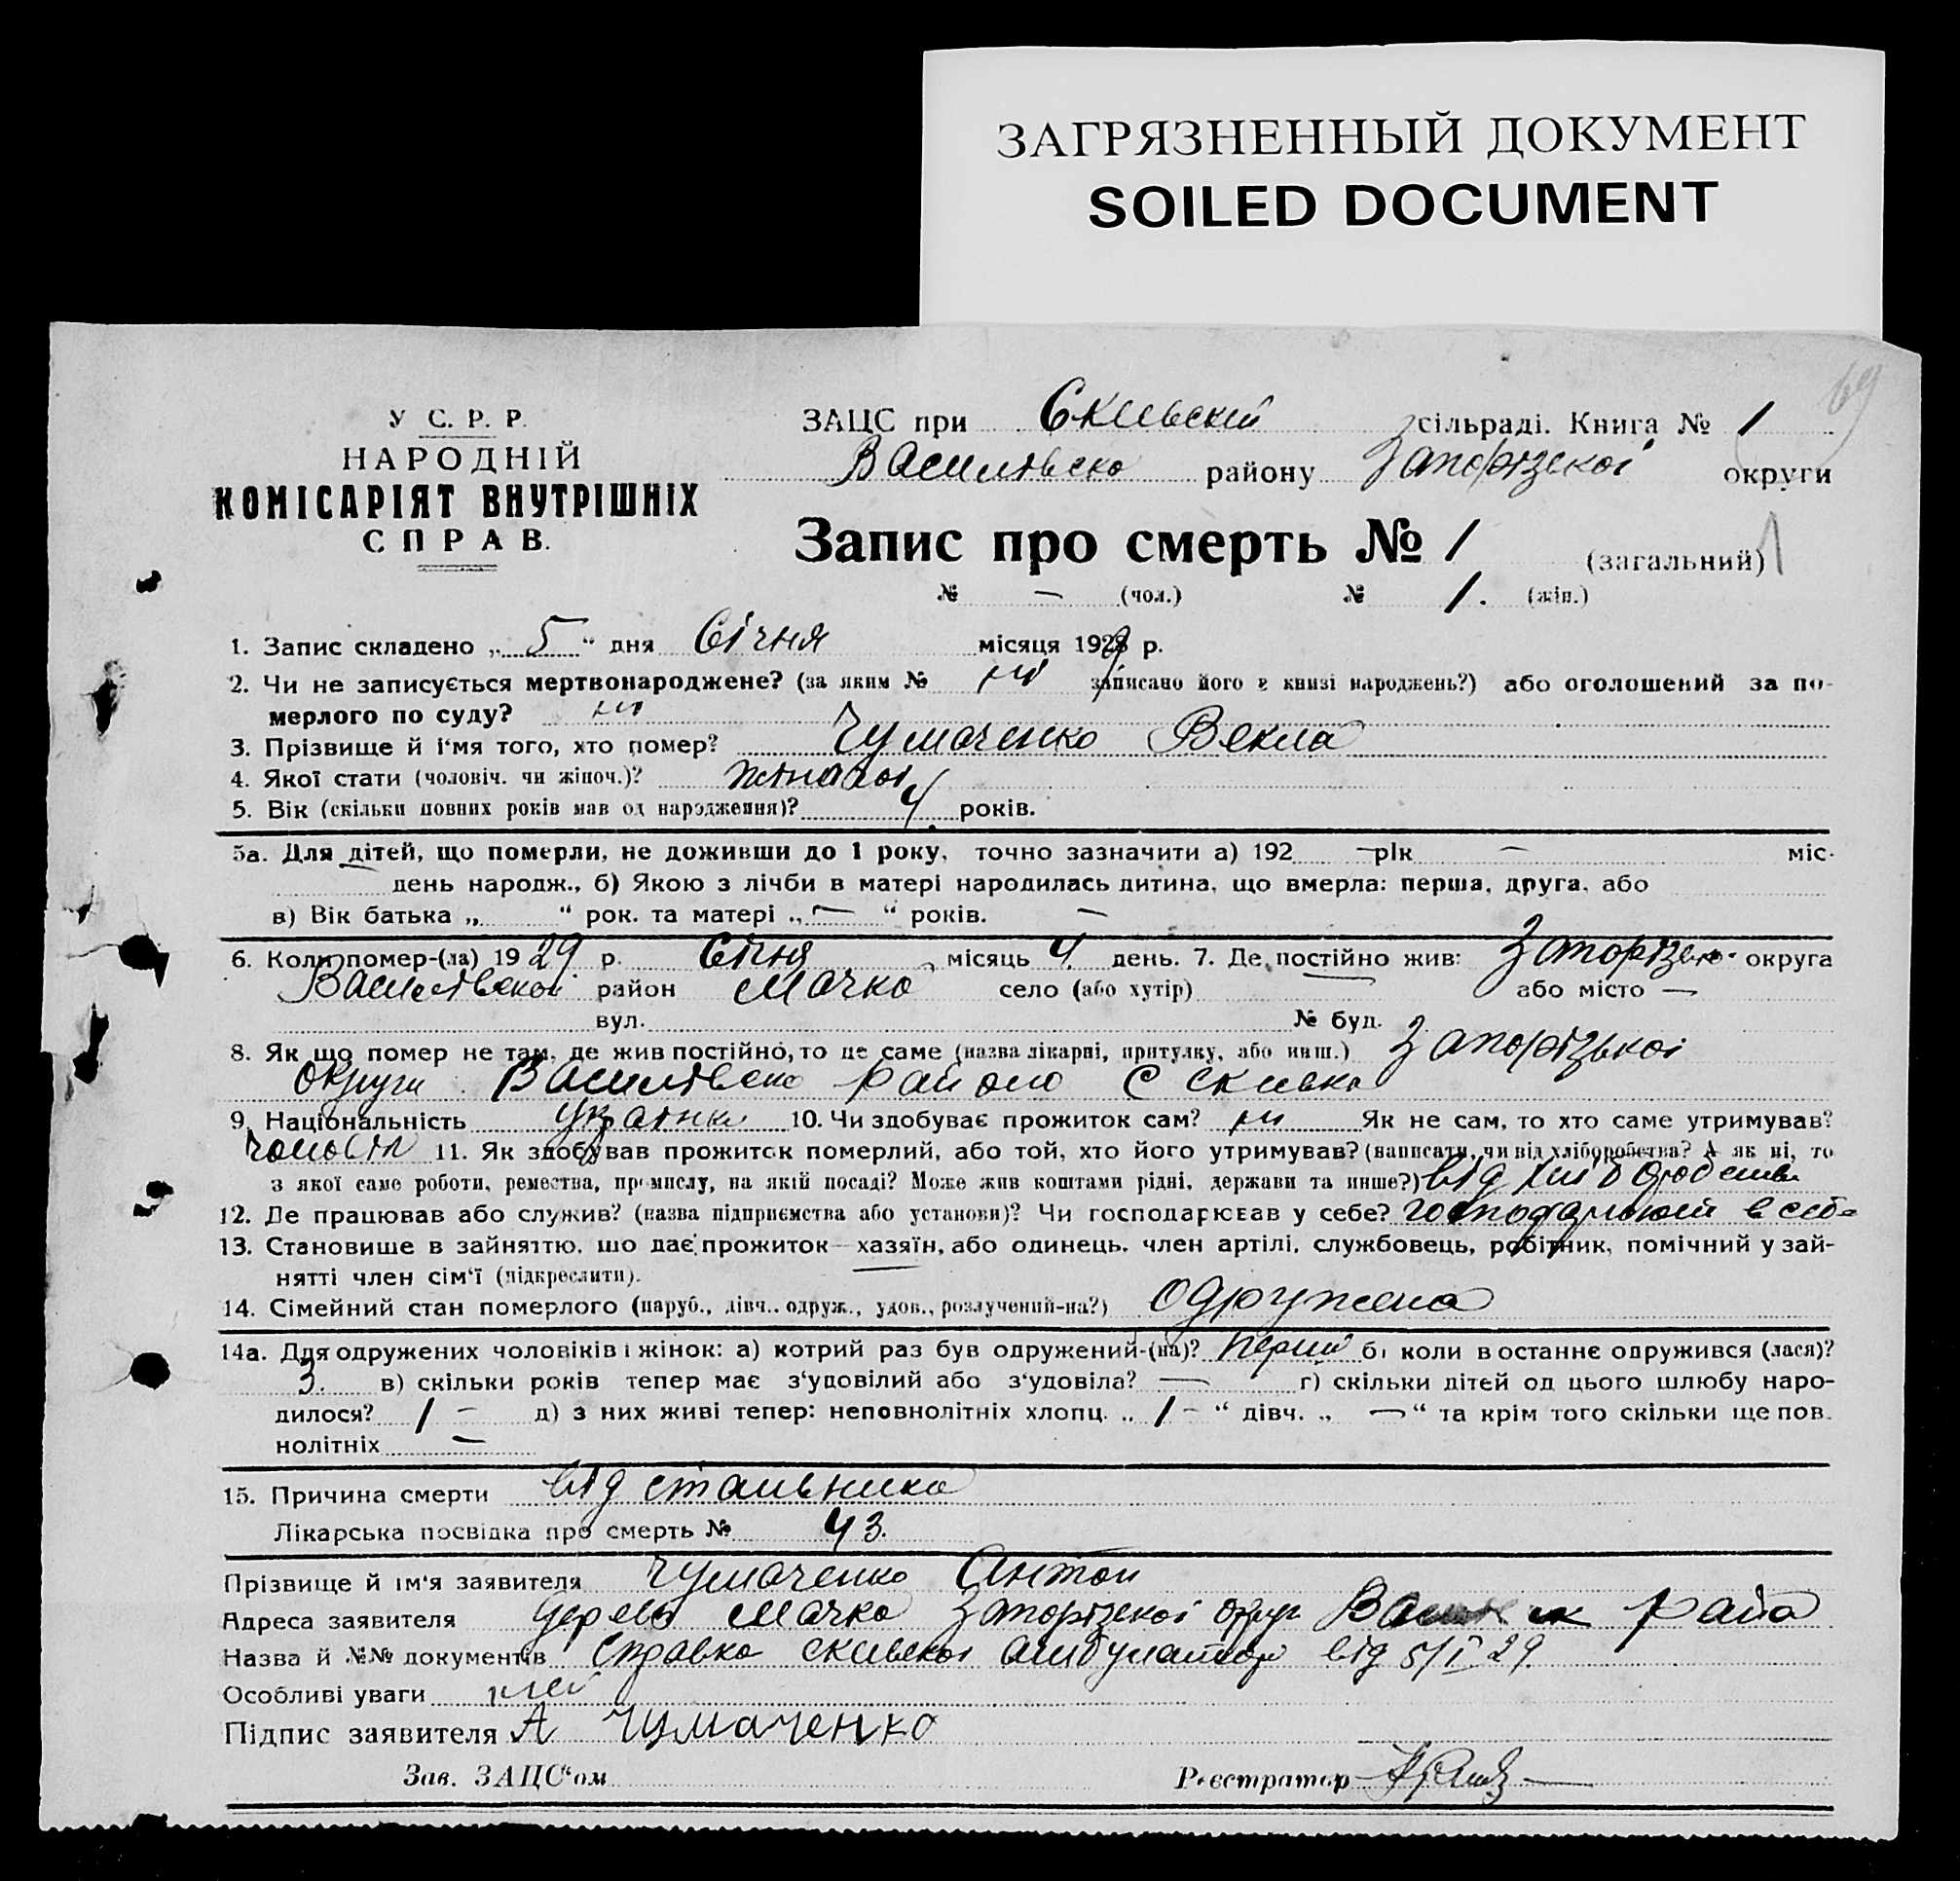 ЗАГРЯЗНЕННЫЙ ДОКУМЕНТ
SOILED DOCUMENT
69
У С. Р. Р.
НАРОДНІЙ
КОМІСАРІЯТ ВНУТРІШНІХ
СПРАВ.
ЗАЦС при Скельскій сільраді. Книга № 1
Василівско району Запорізскої округи
Запис про смерть № 1 (загальний) 1
№ — (чол.) № 1. (жін.)
1. Запис складено „ 5 “ дня Січня місяця 1929 р.
2. Чи не записується мертвонароджене? (за яким № ні записано його в книзі народжень?) або оголошений за по-
мерлого по суду? ні
3. Прізвище й і'мя того, хто помер? Чумаченко Векла
4. Якої стати (чоловіч. чи жіноч.)?
5. Вік (скільки повних років мав од народження)? років.
5а. Для дітей, що померли, не доживши до 1 року, точно зазначити а) 192 — рік — міс.
день народж., б) Якою з лічби в матері народилась дитина, що вмерла: перша, друга, або
в) Вік батька „ “ рок. та матері „ — “ років. —
6. Коли помер-(ла) 1929 р. Січня місяць 4 день. 7. Де постійно жив: Запорізско. округа
Василівскої район Мачко село (або хутір) — або місто —
вул. № буд.
8. Як що помер не там, де жив постійно, то де саме (назва лікарні, притулку, або инш.) Запорізької
округи Василівско району С Скелька
9. Національність 10. Чи здобуває прожиток сам? ні Як не сам, то хто саме утримував?
чоловік 11. Як здобував прожиток померлий, або той, хто його утримував? (написати, чи від хліборобства? А як ні, то
з якої саме роботи, ремества, промислу, на якій посаді? Може жив коштами рідні, держави та инше?) від хліборобства
12. Де працював або служив? (назва підприємства або установи)? Чи господарював у себе? в себе
13. Становище в зайняттю, що дає прожиток—хазяїн, або одинець, член артілі, службовець, робітник, помічний у зай-
нятті член сім'ї (підкреслити).
14. Сімейний стан померлого (паруб., дівч., одруж., удов., розлучений-на?) Одружена
14а. Для одружених чоловіків і жінок: а) котрий раз був одружений-(на)? перши б) коли в останнє одружився (лася)?
3. в) скільки років тепер має з'удовілий або з'удовіла? — г) скільки дітей од цього шлюбу наро-
дилося? 1 — д) з них живі тепер: неповнолітніх хлопц. „ 1 — “ дівч. „ — “ та крім того скільки ще пов.
нолітніх —
15. Причина смерти від
Лікарська посвідка про смерть № 43.
Прізвище й ім'я заявителя Чумаченко Антон
Адреса заявителя Мачко Запорізскої округ райо
Назва й №№ документів Справка від 5/I 29.
Особливі уваги
Підпис заявителя А Чумаченко
Зав. ЗАЦС'ом Реєстратор